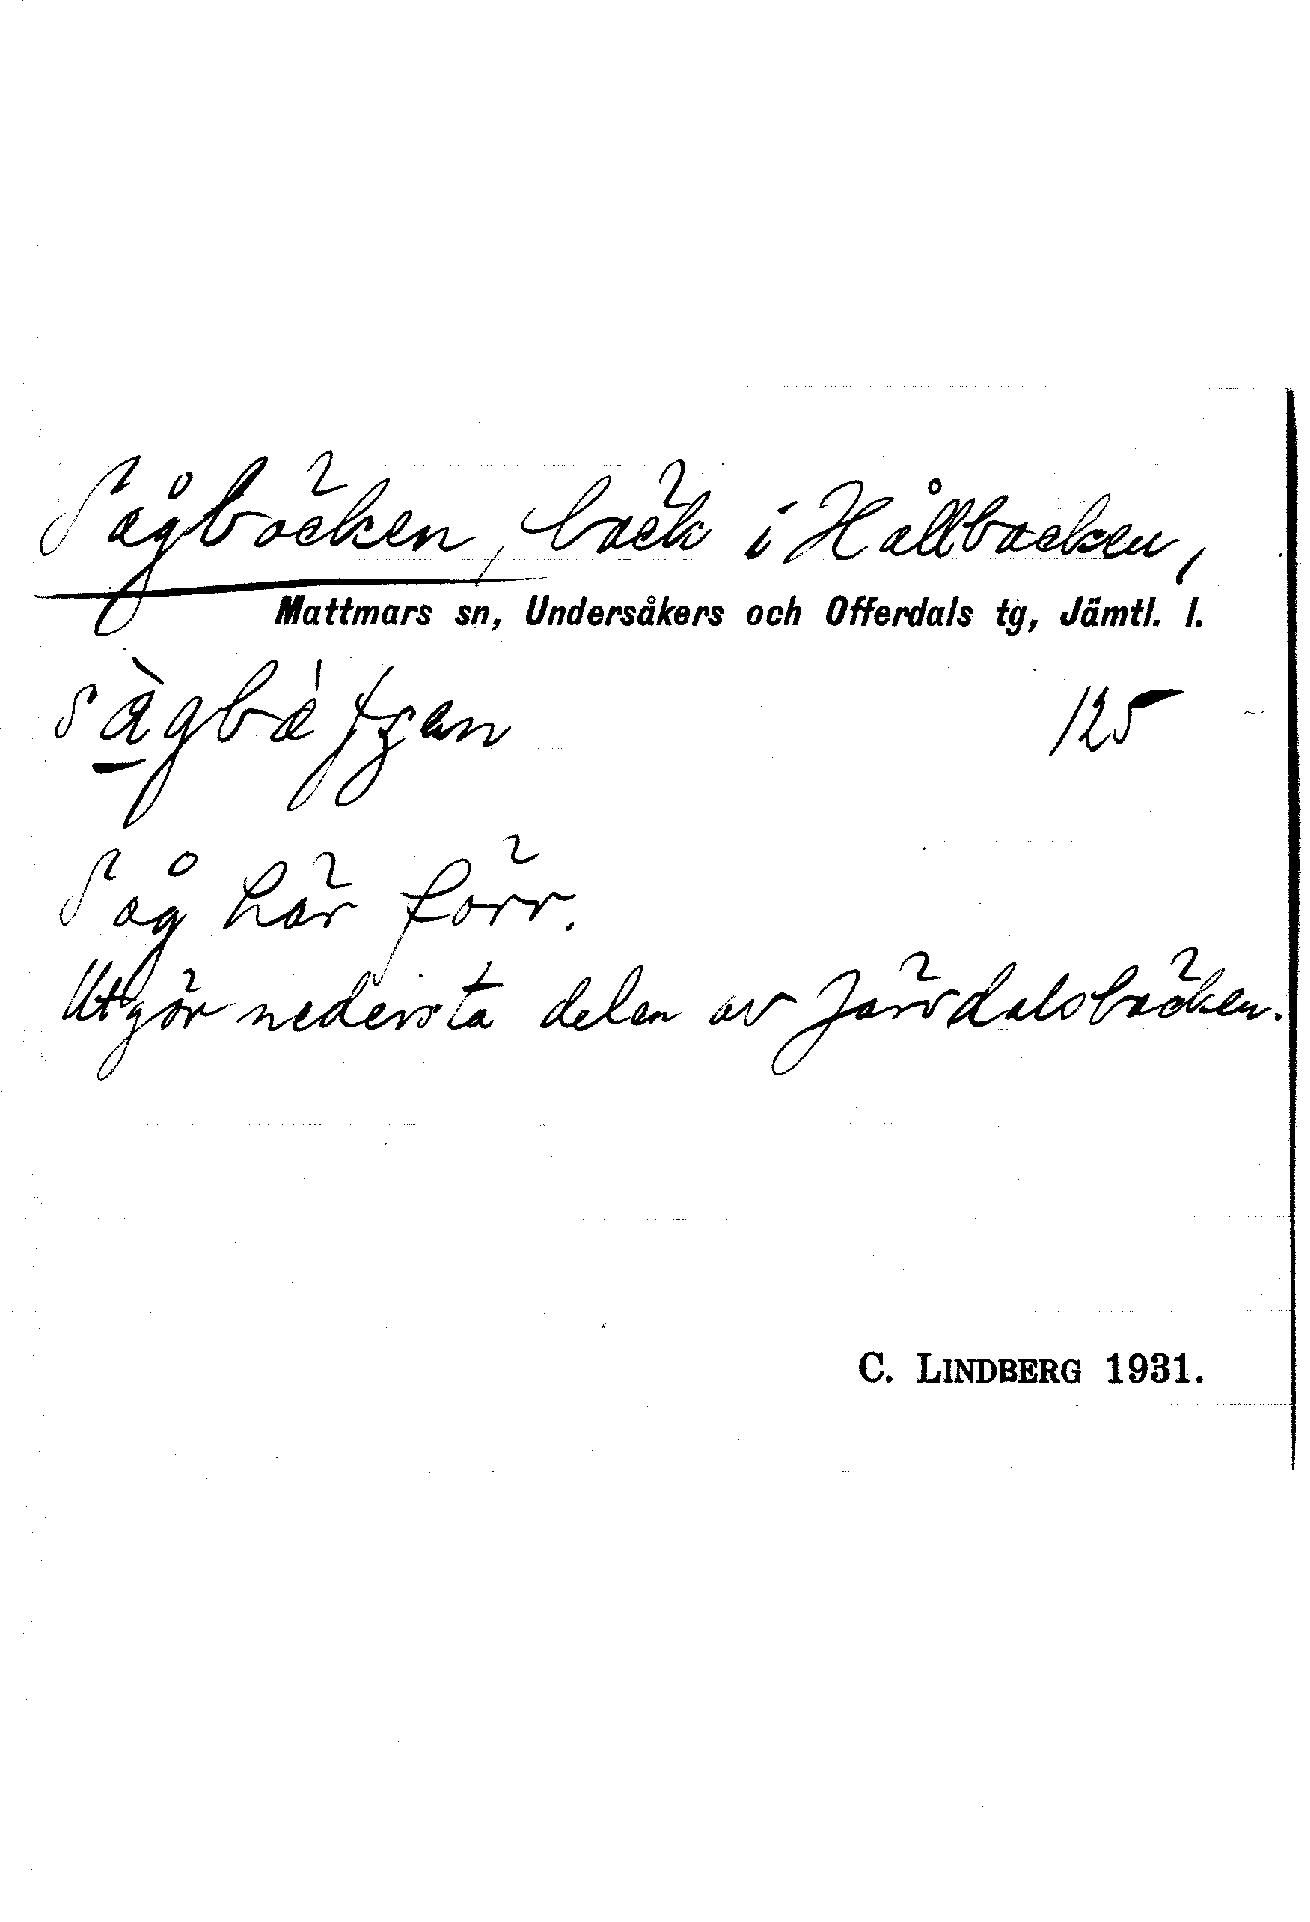 Sågbäcken, bäck i Hållbacken,
Mattmars sn, Undersåkers och Offerdals tg, Jämtl. l.
125
Såg här förr.
Utgör nedersta delen av Järvdalsbäcken.
C. LINDBERG 1931.